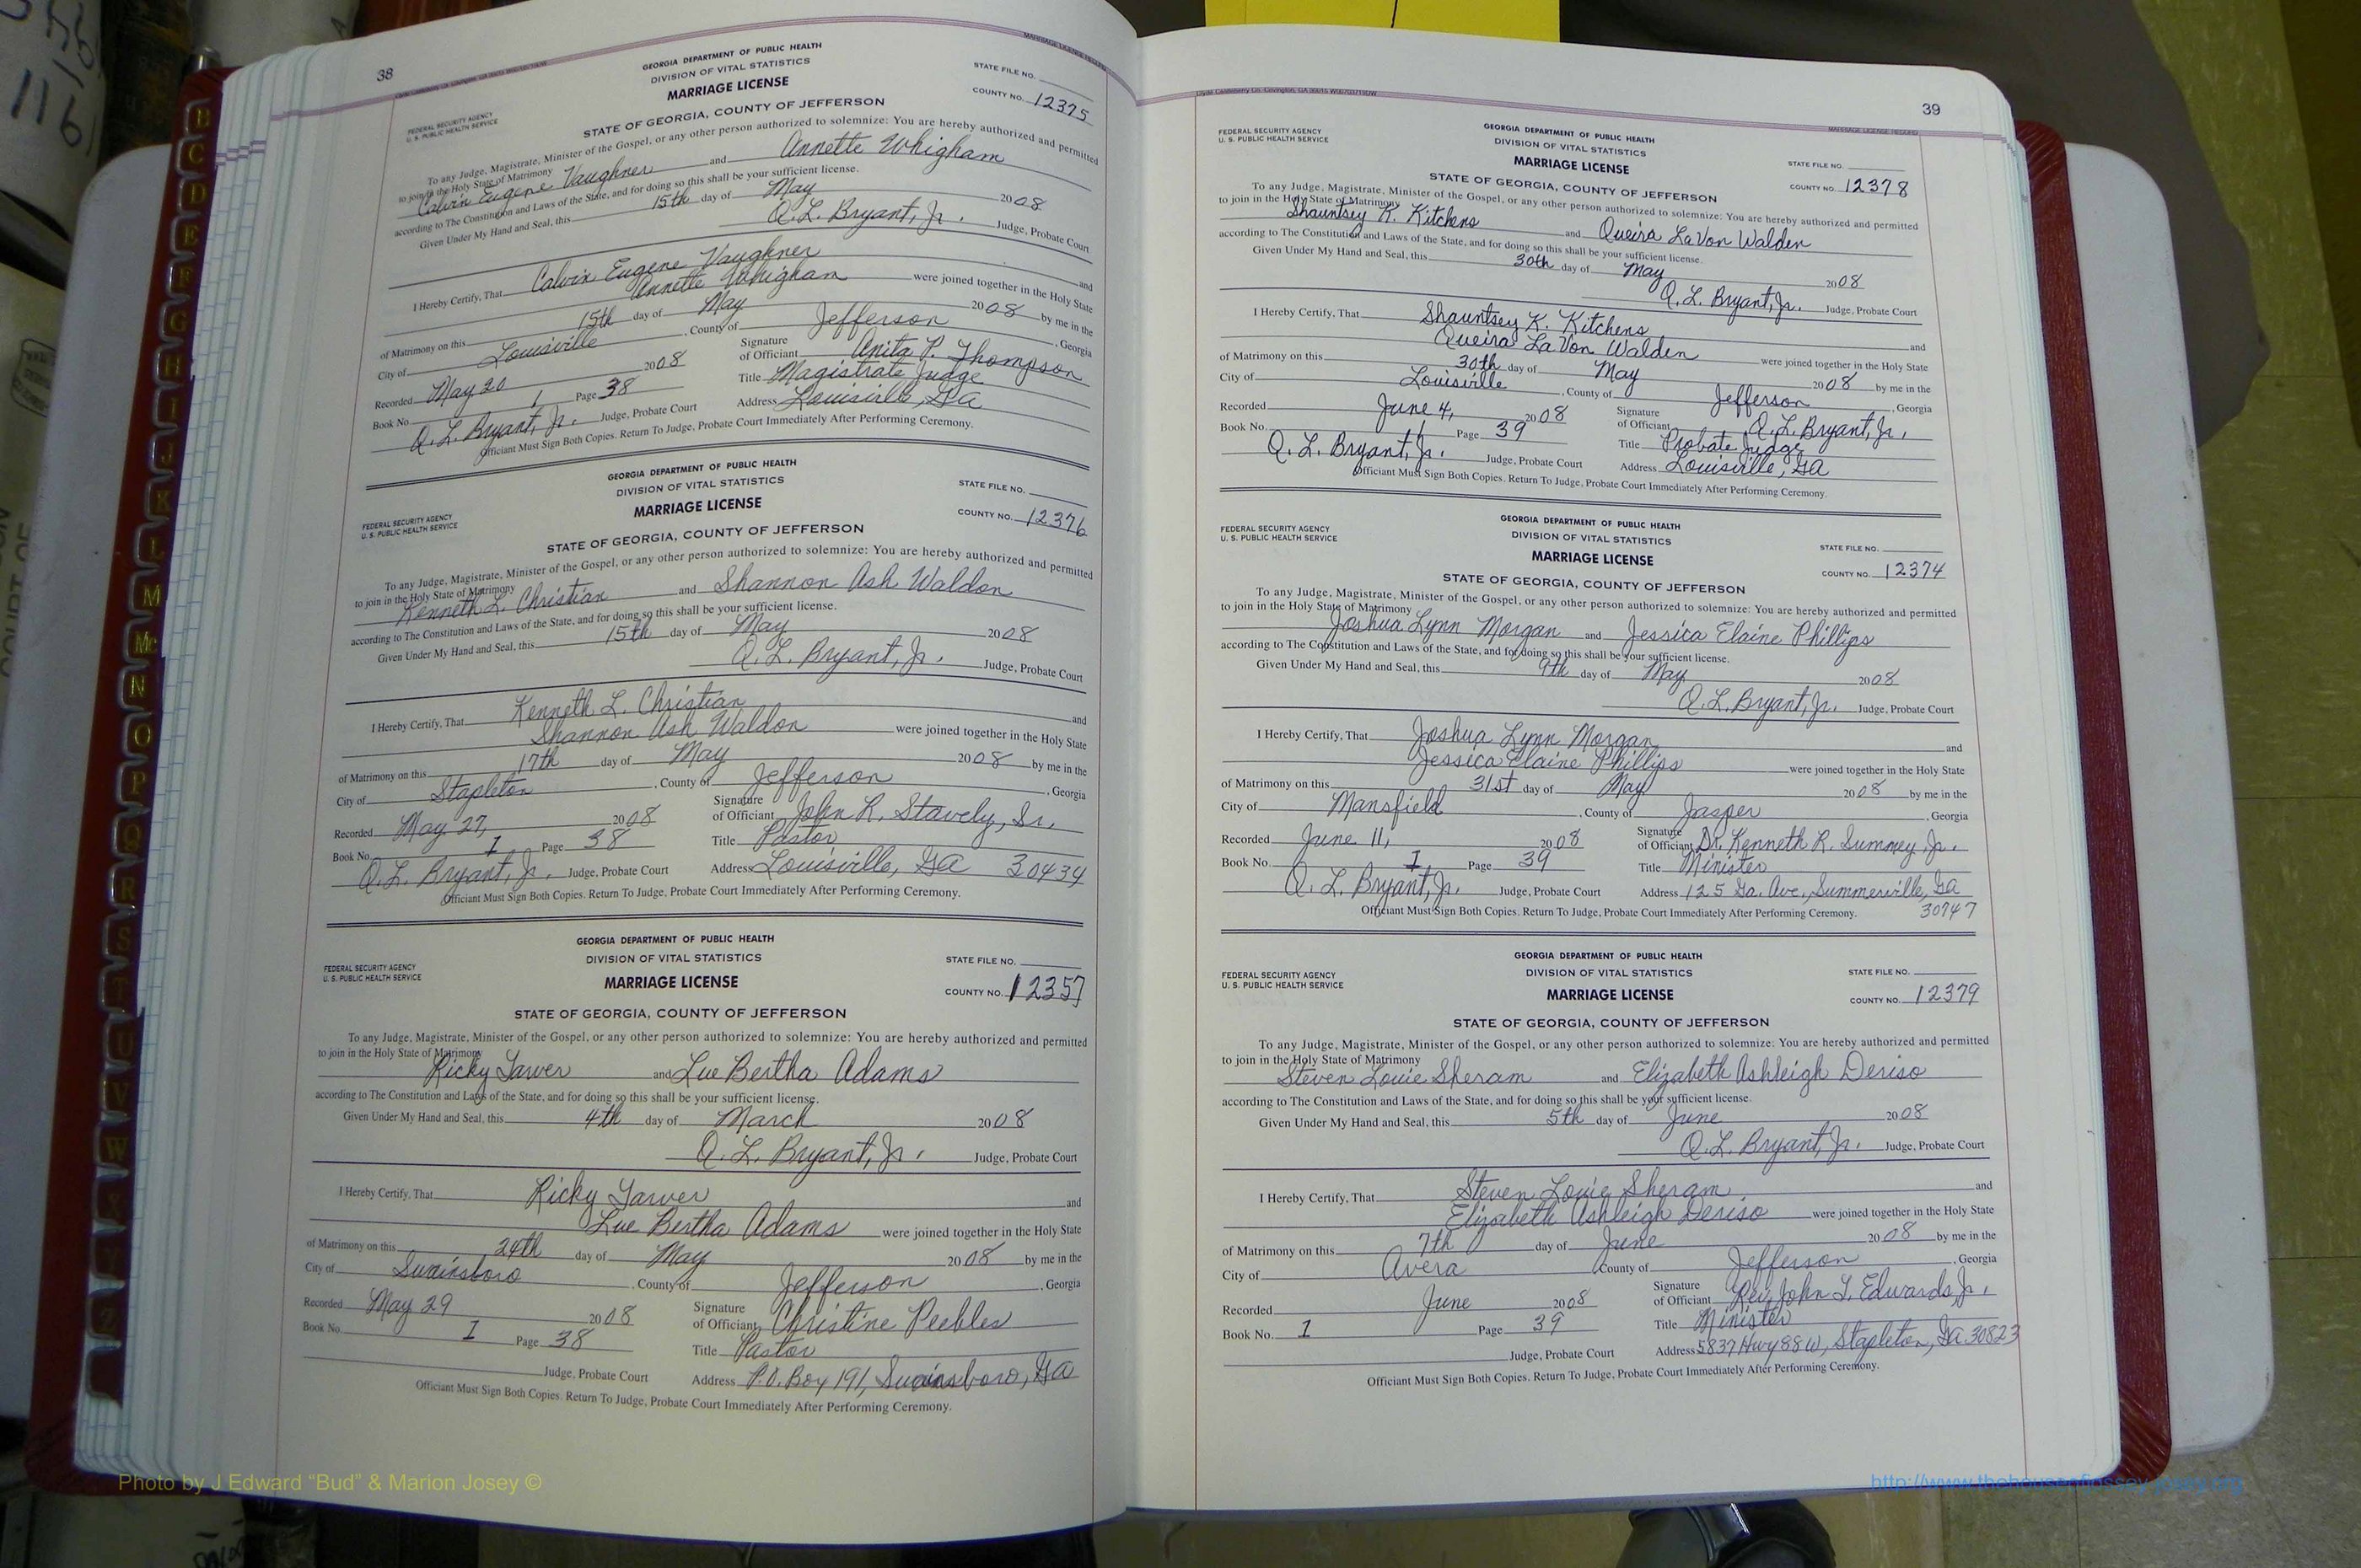 38
GEORGIA DEPARTMENT OF PUBLIC HEALTH
DIVISION OF VITAL STATISTICS
MARRIAGE LICENSE
STATE OF GEORGIA, COUNTY OF JEFFERSON
FEDERAL SECURITY AGENCY
U. S. PUBLIC HEALTH SERVICE
STATE FILE NO.
COUNTY NO. 12375
To any Judge, Magistrate, Minister of the Gospel, or any other person authorized to solemnize: You are hereby authorized and permitted
to join in the Holy State of Matrimony
Calvin Eugene Vaughner and Annette Whigham
according to The Constitution and Laws of the State, and for doing so this shall be your sufficient license.
Given Under My Hand and Seal, this 15th day of May 2008
Q. L. Bryant, Jr. Judge, Probate Court
I Hereby Certify, That Calvin Eugene Vaughner and
Annette Whigham were joined together in the Holy State
of Matrimony on this 15th day of May 2008 by me in the
City of Louisville, County of Jefferson, Georgia
Recorded May 20 2008 Signature of Officiant Anita P. Thompson
Book No. 1 Page 38 Title Magistrate Judge
Q. L. Bryant, Jr. Judge, Probate Court Address Louisville, Ga
Officiant Must Sign Both Copies. Return To Judge, Probate Court Immediately After Performing Ceremony.
GEORGIA DEPARTMENT OF PUBLIC HEALTH
DIVISION OF VITAL STATISTICS
MARRIAGE LICENSE
STATE OF GEORGIA, COUNTY OF JEFFERSON
FEDERAL SECURITY AGENCY
U. S. PUBLIC HEALTH SERVICE
STATE FILE NO.
COUNTY NO. 12376
To any Judge, Magistrate, Minister of the Gospel, or any other person authorized to solemnize: You are hereby authorized and permitted
to join in the Holy State of Matrimony
Kenneth L. Christian and Shannon Ash Waldon
according to The Constitution and Laws of the State, and for doing so this shall be your sufficient license.
Given Under My Hand and Seal, this 15th day of May 2008
Q. L. Bryant, Jr. Judge, Probate Court
I Hereby Certify, That Kenneth L. Christian and
Shannon Ash Waldon were joined together in the Holy State
of Matrimony on this 17th day of May 2008 by me in the
City of Stapleton, County of Jefferson, Georgia
Recorded May 27, 2008 Signature of Officiant John R. Stavely, Sr.
Book No. 1 Page 38 Title Pastor
Q. L. Bryant, Jr. Judge, Probate Court Address Louisville, Ga 30434
Officiant Must Sign Both Copies. Return To Judge, Probate Court Immediately After Performing Ceremony.
GEORGIA DEPARTMENT OF PUBLIC HEALTH
DIVISION OF VITAL STATISTICS
MARRIAGE LICENSE
STATE OF GEORGIA, COUNTY OF JEFFERSON
FEDERAL SECURITY AGENCY
U. S. PUBLIC HEALTH SERVICE
STATE FILE NO.
COUNTY NO. 12357
To any Judge, Magistrate, Minister of the Gospel, or any other person authorized to solemnize: You are hereby authorized and permitted
to join in the Holy State of Matrimony
Ricky Tarver and Lue Bertha Adams
according to The Constitution and Laws of the State, and for doing so this shall be your sufficient license.
Given Under My Hand and Seal, this 4th day of March 2008
Q. L. Bryant, Jr. Judge, Probate Court
I Hereby Certify, That Ricky Tarver and
Lue Bertha Adams were joined together in the Holy State
of Matrimony on this 24th day of May 2008 by me in the
City of Swainsboro, County of Jefferson, Georgia
Recorded May 29 2008 Signature of Officiant Christine Peebles
Book No. 1 Page 38 Title Pastor
Judge, Probate Court Address P.O. Box 191, Swainsboro, Ga
Officiant Must Sign Both Copies. Return To Judge, Probate Court Immediately After Performing Ceremony.
39
FEDERAL SECURITY AGENCY
U. S. PUBLIC HEALTH SERVICE
GEORGIA DEPARTMENT OF PUBLIC HEALTH
DIVISION OF VITAL STATISTICS
MARRIAGE LICENSE
STATE OF GEORGIA, COUNTY OF JEFFERSON
STATE FILE NO.
COUNTY NO. 12378
To any Judge, Magistrate, Minister of the Gospel, or any other person authorized to solemnize: You are hereby authorized and permitted
to join in the Holy State of Matrimony
Shauntsey K. Kitchens and Queira LaVon Walden
according to The Constitution and Laws of the State, and for doing so this shall be your sufficient license.
Given Under My Hand and Seal, this 30th day of May 2008
Q. L. Bryant, Jr. Judge, Probate Court
I Hereby Certify, That Shauntsey K. Kitchens and
Queira LaVon Walden were joined together in the Holy State
of Matrimony on this 30th day of May 2008 by me in the
City of Louisville, County of Jefferson, Georgia
Recorded June 4, 2008 Signature of Officiant Q. L. Bryant, Jr.
Book No. 1 Page 39 Title Probate Judge
Q. L. Bryant, Jr. Judge, Probate Court Address Louisville, Ga
Officiant Must Sign Both Copies. Return To Judge, Probate Court Immediately After Performing Ceremony.
FEDERAL SECURITY AGENCY
U. S. PUBLIC HEALTH SERVICE
GEORGIA DEPARTMENT OF PUBLIC HEALTH
DIVISION OF VITAL STATISTICS
MARRIAGE LICENSE
STATE OF GEORGIA, COUNTY OF JEFFERSON
STATE FILE NO.
COUNTY NO. 12374
To any Judge, Magistrate, Minister of the Gospel, or any other person authorized to solemnize: You are hereby authorized and permitted
to join in the Holy State of Matrimony
Joshua Lynn Morgan and Jessica Elaine Phillips
according to The Constitution and Laws of the State, and for doing so this shall be your sufficient license.
Given Under My Hand and Seal, this 9th day of May 2008
Q. L. Bryant, Jr. Judge, Probate Court
I Hereby Certify, That Joshua Lynn Morgan and
Jessica Elaine Phillips were joined together in the Holy State
of Matrimony on this 31st day of May 2008 by me in the
City of Mansfield, County of Jasper, Georgia
Recorded June 11, 2008 Signature of Officiant Dr. Kenneth R. Summey, Jr.
Book No. 1 Page 39 Title Minister
Q. L. Bryant, Jr. Judge, Probate Court Address 125 Ga. Ave., Summerville, Ga
Officiant Must Sign Both Copies. Return To Judge, Probate Court Immediately After Performing Ceremony. 30747
FEDERAL SECURITY AGENCY
U. S. PUBLIC HEALTH SERVICE
GEORGIA DEPARTMENT OF PUBLIC HEALTH
DIVISION OF VITAL STATISTICS
MARRIAGE LICENSE
STATE OF GEORGIA, COUNTY OF JEFFERSON
STATE FILE NO.
COUNTY NO. 12379
To any Judge, Magistrate, Minister of the Gospel, or any other person authorized to solemnize: You are hereby authorized and permitted
to join in the Holy State of Matrimony
Steven Louie Sheram and Elizabeth Ashleigh Deriso
according to The Constitution and Laws of the State, and for doing so this shall be your sufficient license.
Given Under My Hand and Seal, this 5th day of June 2008
Q. L. Bryant, Jr. Judge, Probate Court
I Hereby Certify, That Steven Louie Sheram and
Elizabeth Ashleigh Deriso were joined together in the Holy State
of Matrimony on this 7th day of June 2008 by me in the
City of Avera County of Jefferson, Georgia
Recorded June 2008 Signature of Officiant Rev. John T. Edwards, Jr.
Book No. 1 Page 39 Title Minister
Judge, Probate Court Address 5837 Hwy 88 W, Stapleton, Ga 30823
Officiant Must Sign Both Copies. Return To Judge, Probate Court Immediately After Performing Ceremony.
B
C
D
E
F
G
H
I
J
K
L
M
Mc
N
O
P
Q
R
S
T
U
V
W
X
Y
Z
Photo by J Edward “Bud” & Marion Josey ©